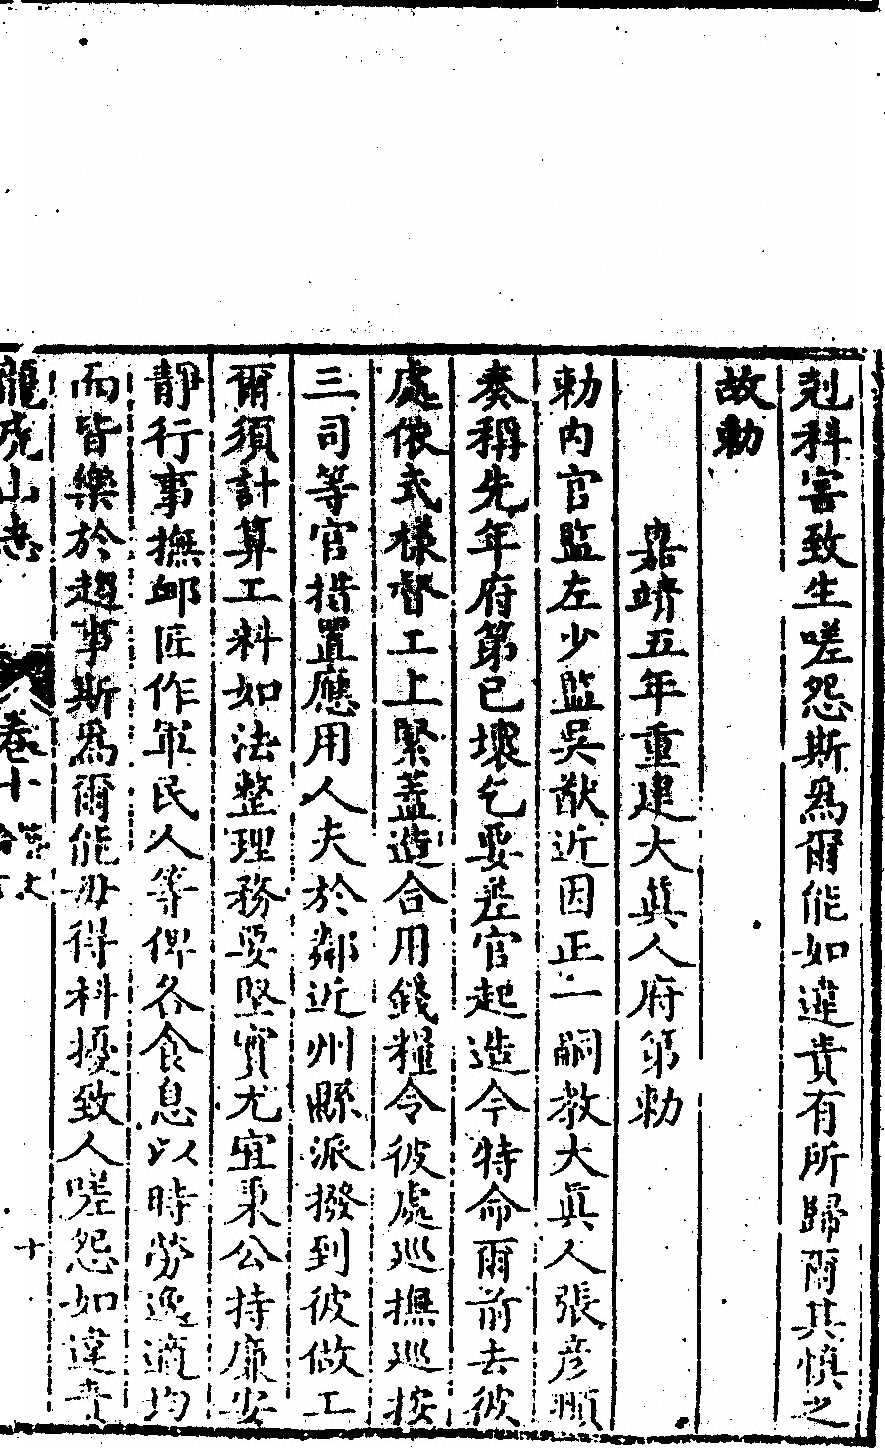 剋科害致生嗟怨斯爲爾能如違責有所歸爾其慎之
故勅
嘉靖五年重建大眞人府第勅
勅內官監左少監吳猷近因正一嗣教大眞人張彦頨
奏稱先年府第已壞乞要差官起造今特命爾前去彼
處依式樣督工上緊蓋造合用錢糧令彼處巡撫巡按
三司等官措置應用人夫於鄰近州縣派撥到彼做工
爾須計算工料如法整理務要堅實尤宜秉公持廉安
靜行事撫卹匠作軍民人等俾各食息以時勞逸適均
而皆樂於趨事斯爲爾能毋得科擾致人嗟怨如違責
龍虎山志 卷十 十